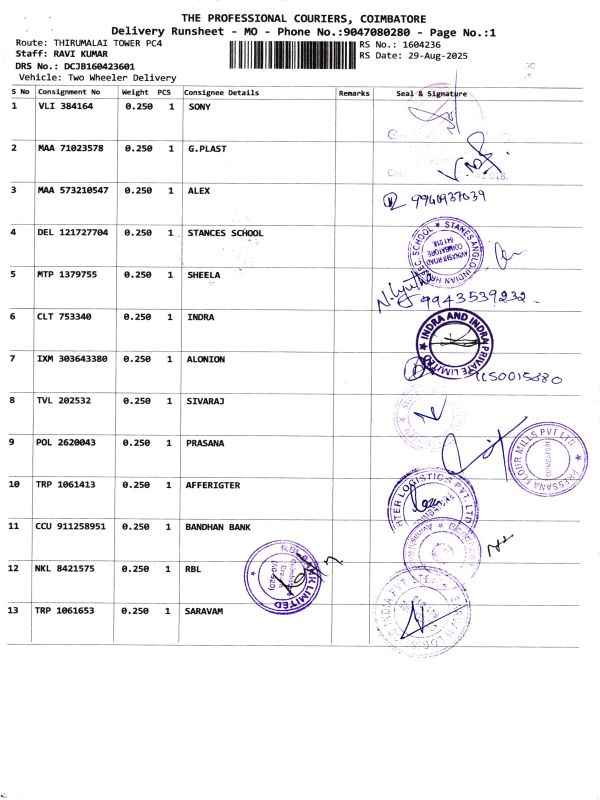 THE PROFESSIONAL COURIERS, COIMBATORE
Delivery Runsheet - MO - Phone No.:9047080280 - Page No.:1
Route: THIRUMALAI TOWER PC4
RS No.: 1604236
Staff: RAVI KUMAR
RS Date: 29-Aug-2025
DRS No.: DCJB160423601
Vehicle: Two Wheeler Delivery
S No Consignment No Weight PCS Consignee Details Remarks Seal & Signature
1 VLI 384164 0.250 1 SONY
2 MAA 71023578 0.250 1 G.PLAST
3 MAA 573210547 0.250 1 ALEX
4 DEL 121727704 0.250 1 STANCES SCHOOL
STANES ANGLO INDIAN
SCHOOL
AVINASHI ROAD
COIMBATORE
641 018.
5 MTP 1379755 0.250 1 SHEELA
9943539232
6 CLT 753340 0.250 1 INDRA
INDRA AND INDRA PRIVATE LIMITED
7 IXM 303643380 0.250 1 ALONION
8 TVL 202532 0.250 1 SIVARAJ
9 POL 2620043 0.250 1 PRASANA
PRESSANA FLOUR MILLS PVT LTD
COIMBATORE
10 TRP 1061413 0.250 1 AFFERIGTER
LOGISTICS PVT. LTD
COIMBATORE
11 CCU 911258951 0.250 1 BANDHAN BANK
12 NKL 8421575 0.250 1 RBL
RBL BANK LIMITED
13 TRP 1061653 0.250 1 SARAVAM